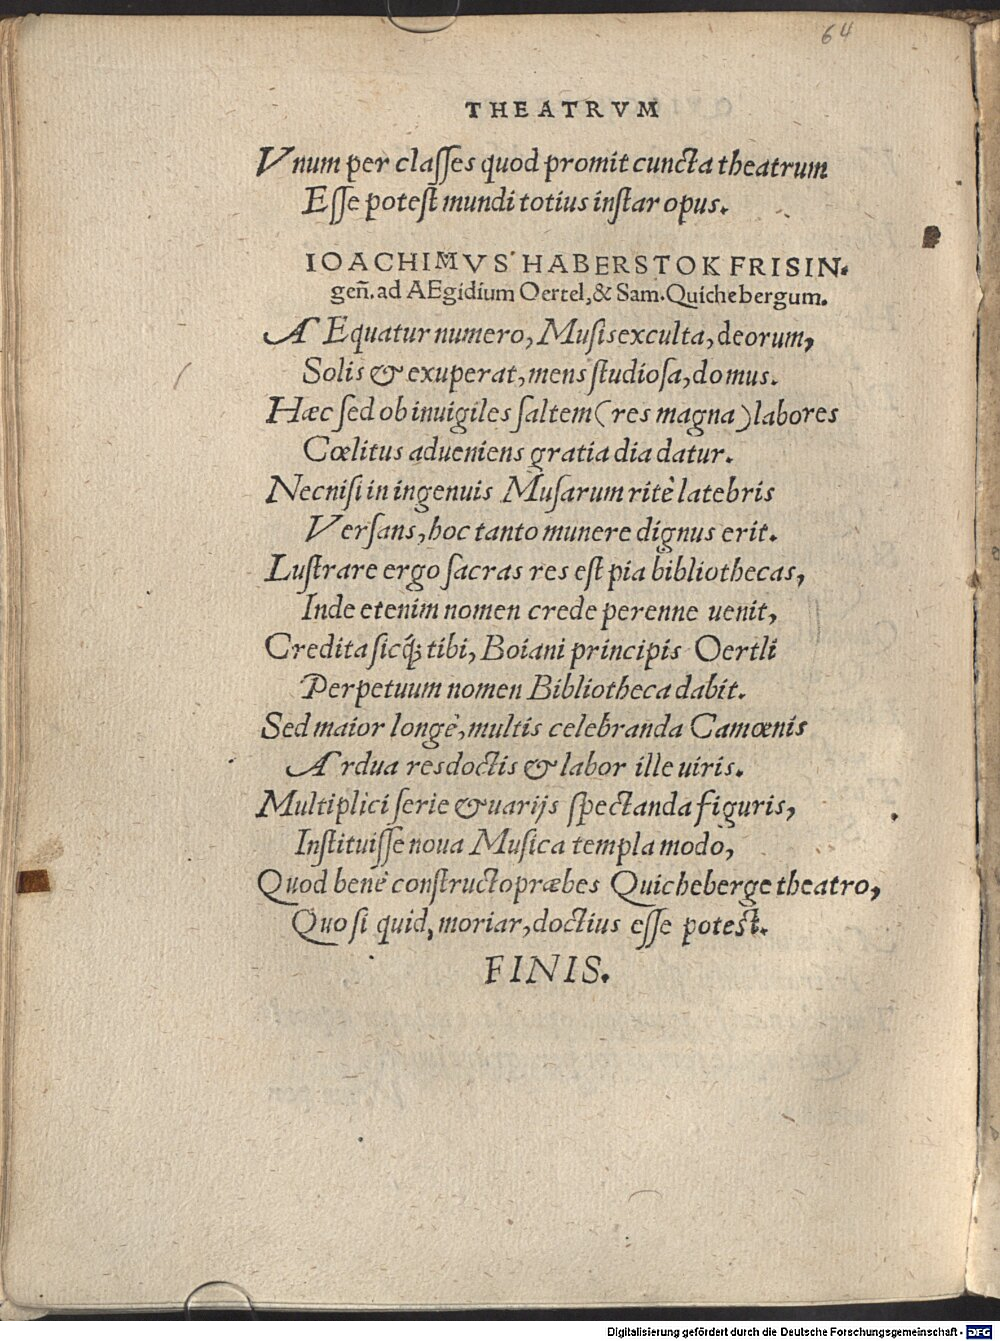 64
THEATRVM
Vnum per claſſes quod promit cuncta theatrum
Eſſe poteſt mundi totius inſtar opus.
IOACHIMVS HABERSTOK FRISIN-
gen̄. ad AEgidium Oertel, & Sam. Quichebergum.
AEquatur numero, Muſis exculta, deorum,
Solis & exuperat, mens ſtudioſa, domus.
Hæc ſed ob inuigiles ſaltem (res magna) labores
Cœlitus adueniens gratia dia datur.
Nec niſi in ingenuis Muſarum ritè latebris
Verſans, hoc tanto munere dignus erit.
Luſtrare ergo ſacras res eſt pia bibliothecas,
Inde etenim nomen crede perenne uenit,
Credita ſicq́; tibi, Boiani principis Oertli
Perpetuum nomen Bibliotheca dabit.
Sed maior longè, multis celebranda Camœnis
Ardua res doctis & labor ille uiris.
Multiplici ſerie & uarijs ſpectanda figuris,
Inſtituiſſe noua Muſica templa modo,
Quod benè conſtructo præbes Quicheberge theatro,
Quo ſi quid, moriar, doctius eſſe poteſt.
FINIS.
Digitalisierung gefördert durch die Deutsche Forschungsgemeinschaft - DFG